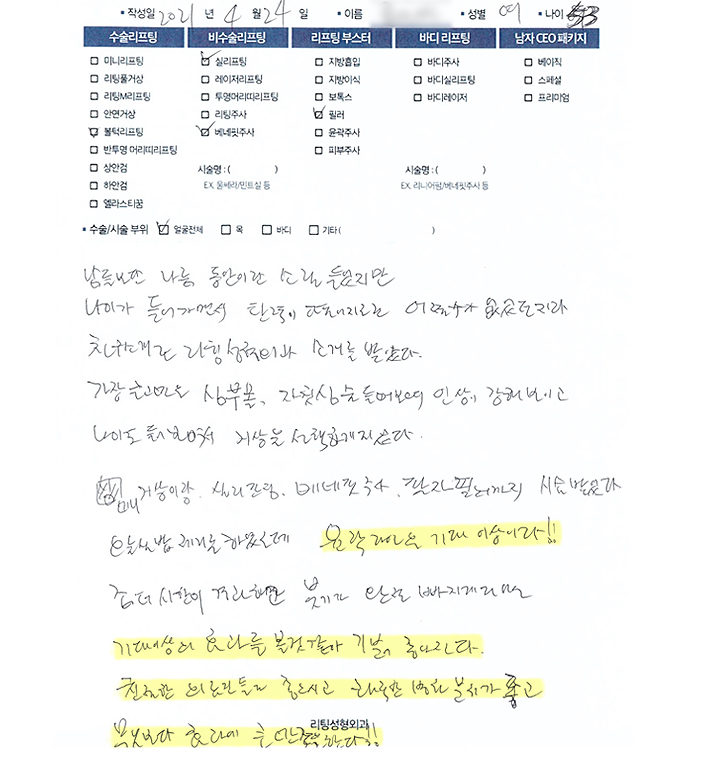 • 작성일 2021 년 4 월 24 일 • 이름 • 성별 여 • 나이 53
수술리프팅 비수술리프팅 리프팅 부스터 바디 리프팅 남자 CEO 패키지
미니리프팅 실리프팅 지방흡입 바디주사 베이직
리팅풀거상 레이저리프팅 지방이식 바디실리프팅 스페셜
리팅M리프팅 투명머리띠리프팅 보톡스 바디레이저 프리미엄
안면거상 리팅주사 필러
볼턱리프팅 베네핏주사 윤곽주사
반투명 머리띠리프팅 피부주사
상안검 시술명 : ( ) 시술명 : ( )
하안검 EX. 울쎄라/민트실 등 EX. 리니어펌/베네핏주사 등
엘라스티꿈
• 수술/시술 부위 얼굴전체 목 바디 기타 ( )
남들보면 나름 동안이란 소릴 들었지만
나이가 들어가면서 탄력이 떨어지는건 어쩔수가 없었는지라
친구소개로 리팅성형외과 소개를 받았다.
가장 큰고민은 심부볼, 자칫 심술들어보여 인상이 강해보이고
나이도 들어보여 거상을 선택하게 되었다.
미니거상이랑. 실리프팅. 베네핏주사. 팔자필러까지 시술받았다
오늘 실밥제거를 하였는데 윤곽라인은 기대 이상이다!!
좀더 시간이 경과하면 붓기가 완전 빠지게되면
기대이상의 효과를 볼것같아 기분이 좋아진다.
친절한 의료진들이 좋으시고 화목한 병원 분위기가 좋고
무엇보다 효과에 큰 만족한다!!
리팅성형외과